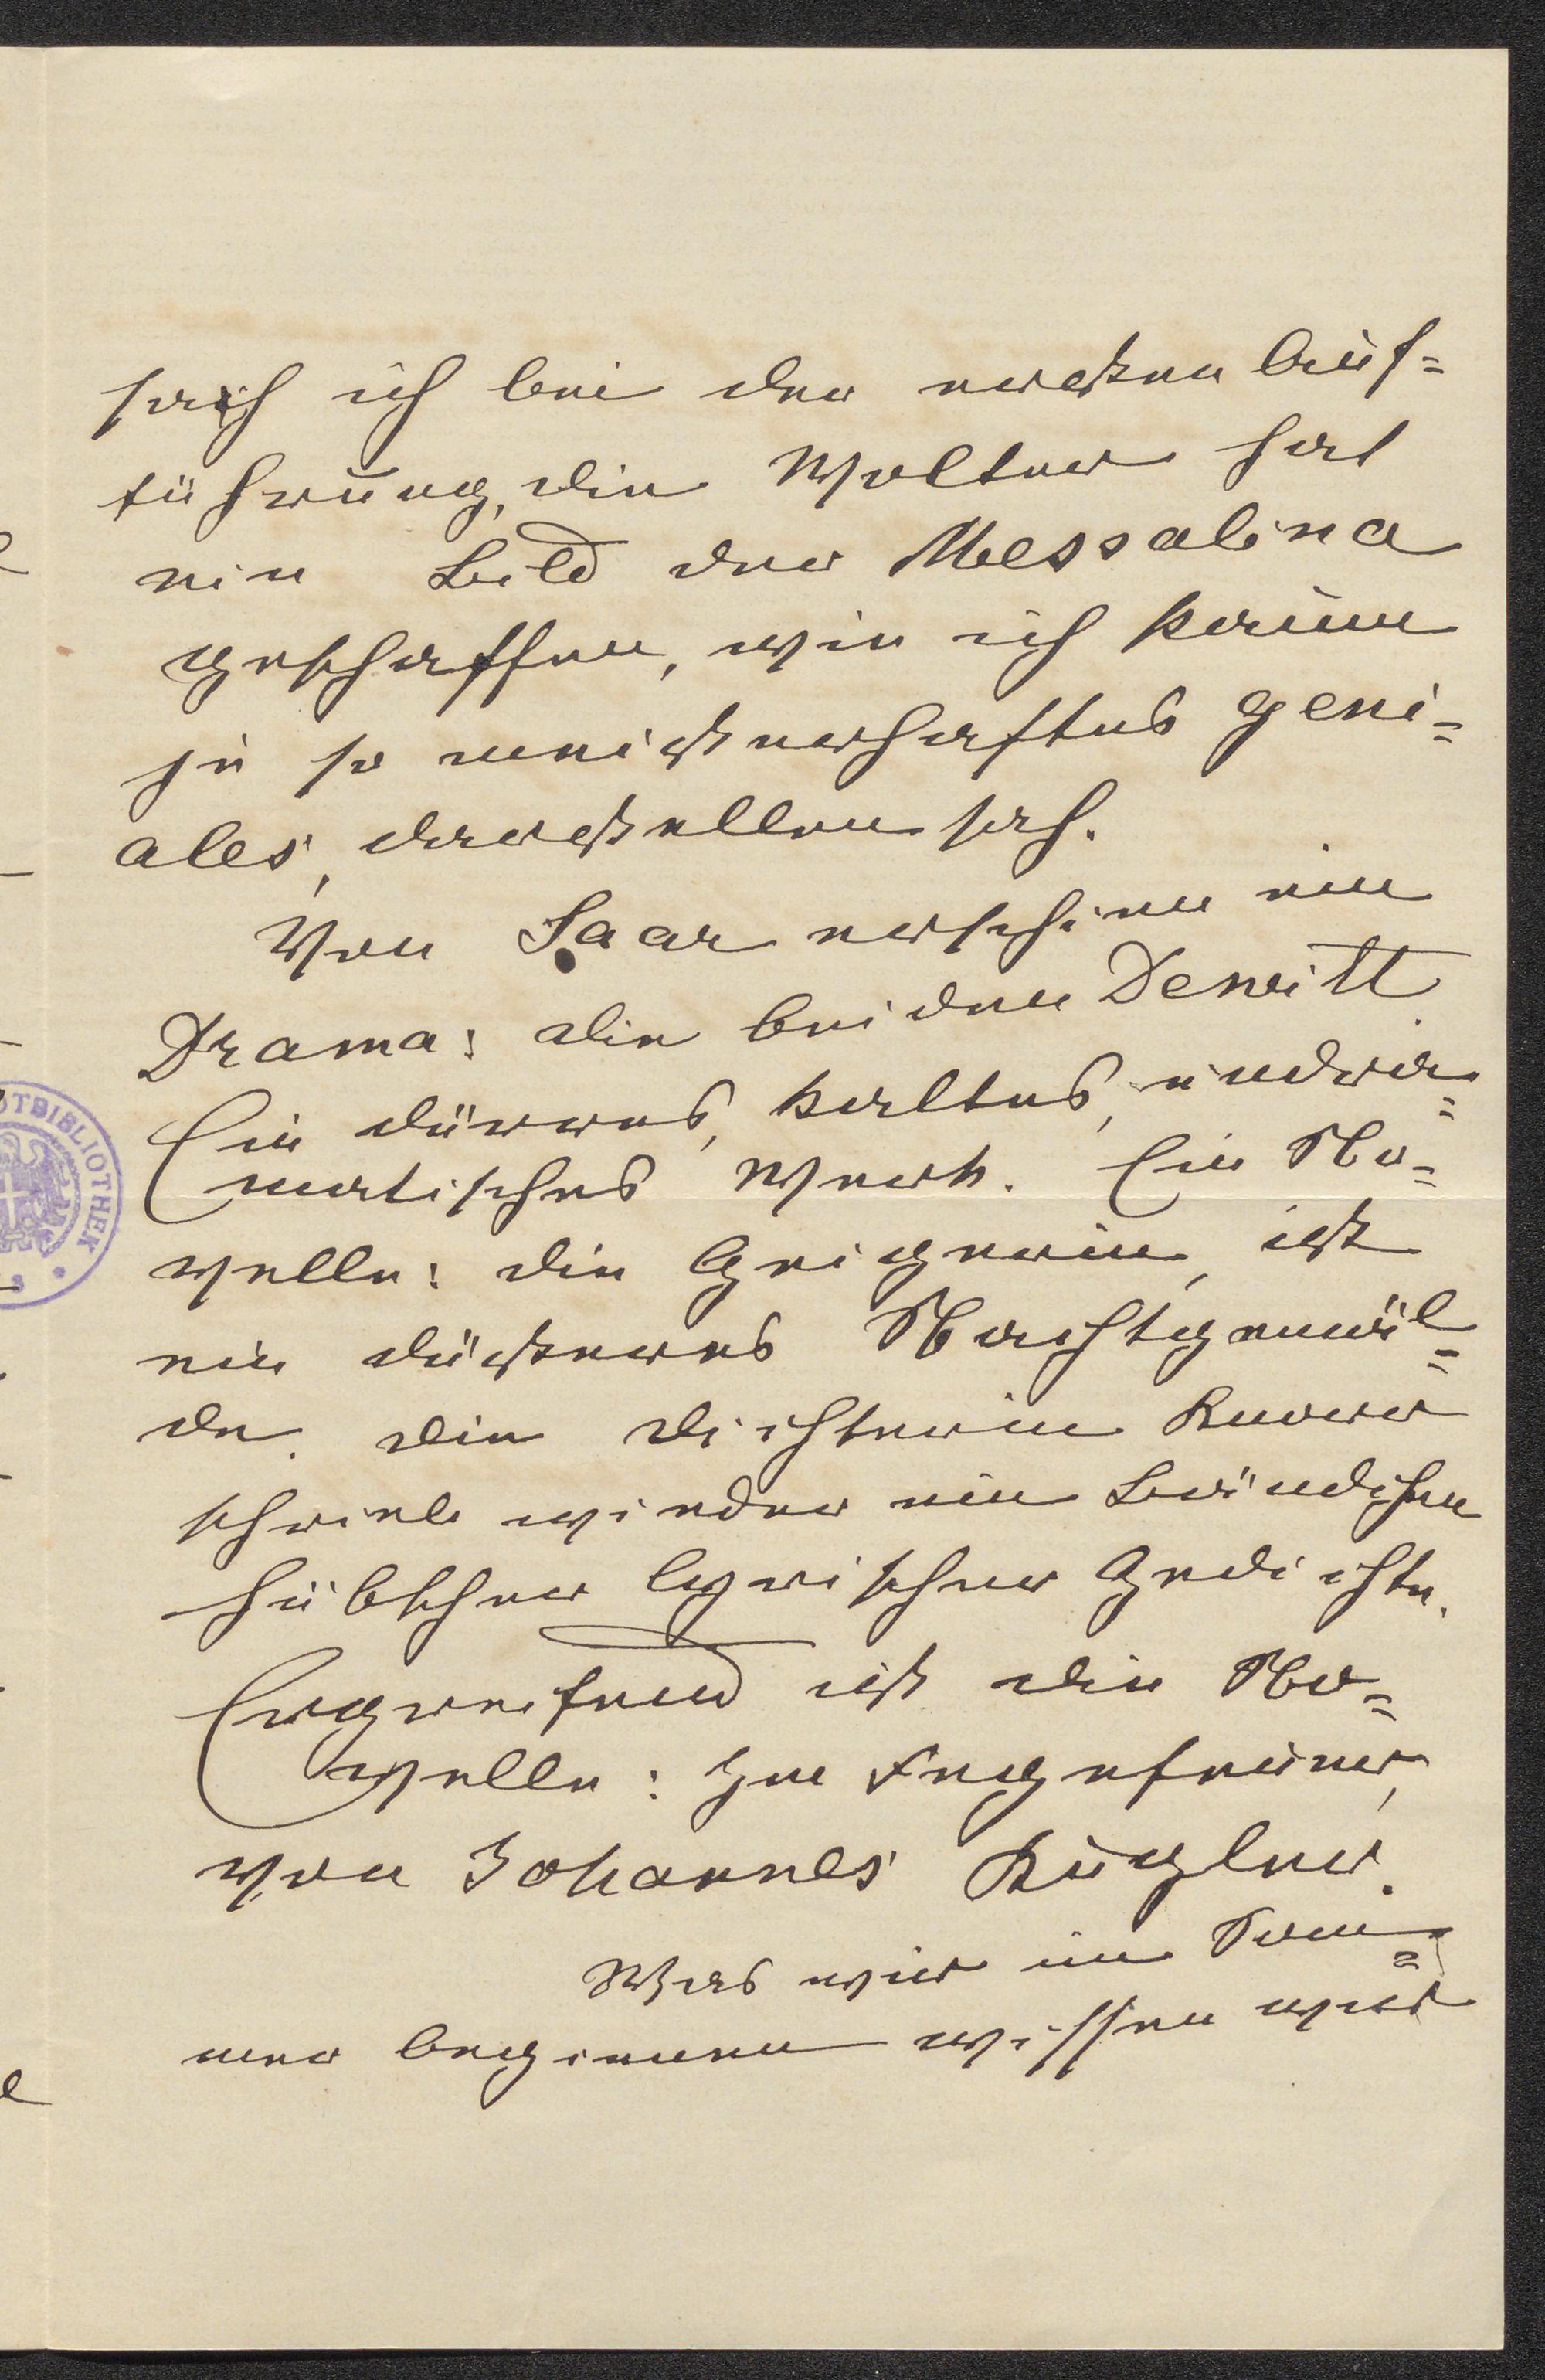 sah ich bei der ersten Auf=
führung, die Wolter hat
ein Bild der Messalina
geschaffen, wie ich kaum
je so meisterhaftes geni=
ales, darstellen sah.
Von Saar erschien ein
Drama: die beiden Dewitt
Ein dürres, kaltes, undra=
matisches Werk. Ein No=
velle: die Geigerin, ist
ein düsteres Nachtgemäl=
de. die Dichterin Knorr
schrieb wieder ein Bändchen
hübscher lyrischer Gedichte.
Ergreifend ist die No=
velle: Im Fegefeuer,
von Johannes Kugler.
Was wir im Som=
mer beginnen wissen wir
BIBLIOTHEK